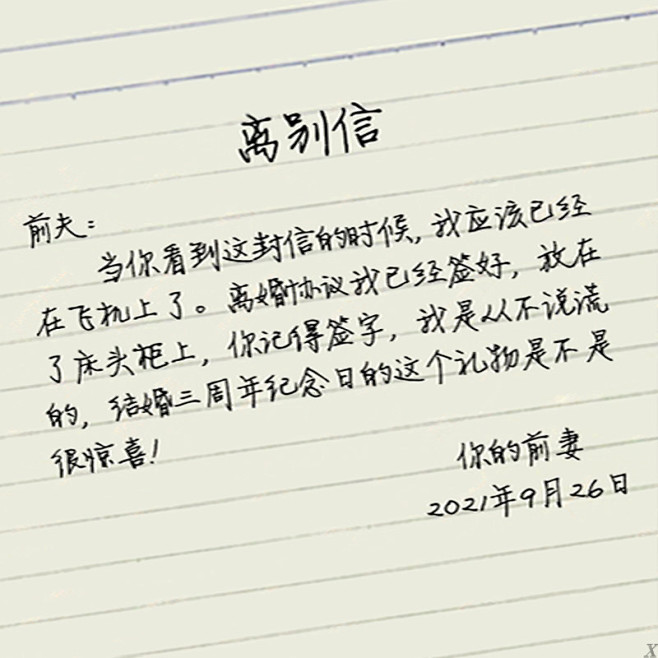 离别信
前夫：
当你看到这封信的时候，我应该已经
在飞机上了。离婚协议我已经签好，放在
了床头柜上，你记得签字，我是从不说谎
的，结婚三周年纪念日的这个礼物是不是
很惊喜！
你的前妻
2021年9月26日
X